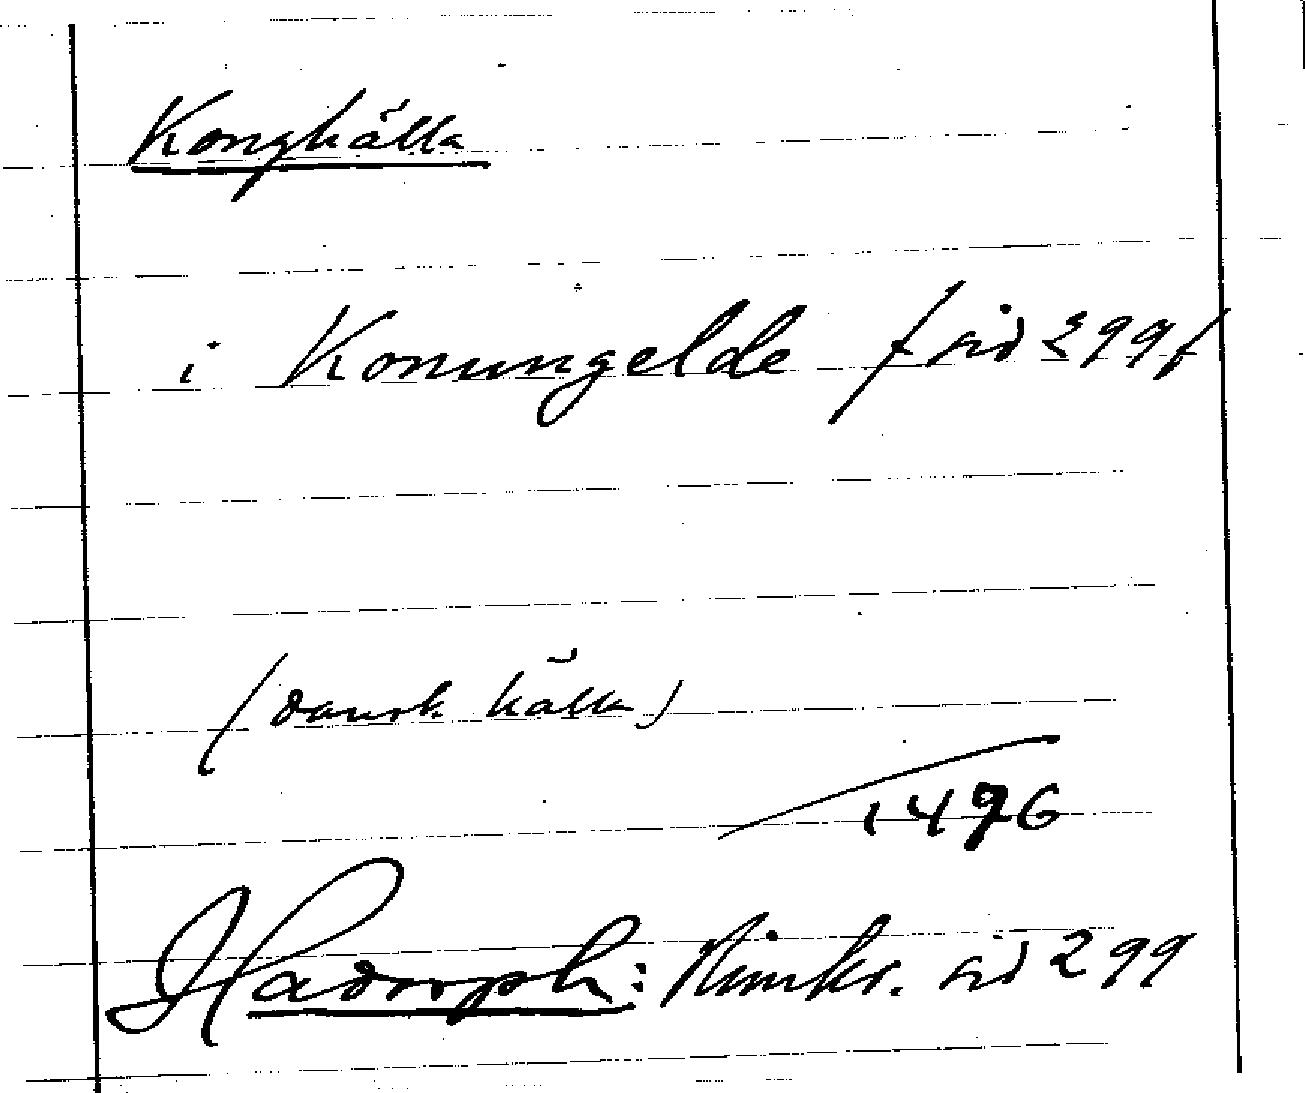 Konghälla
i Konungelde / sid 299 /
(dansk källa)
1496
Hadorph: Rimkr. sid 299